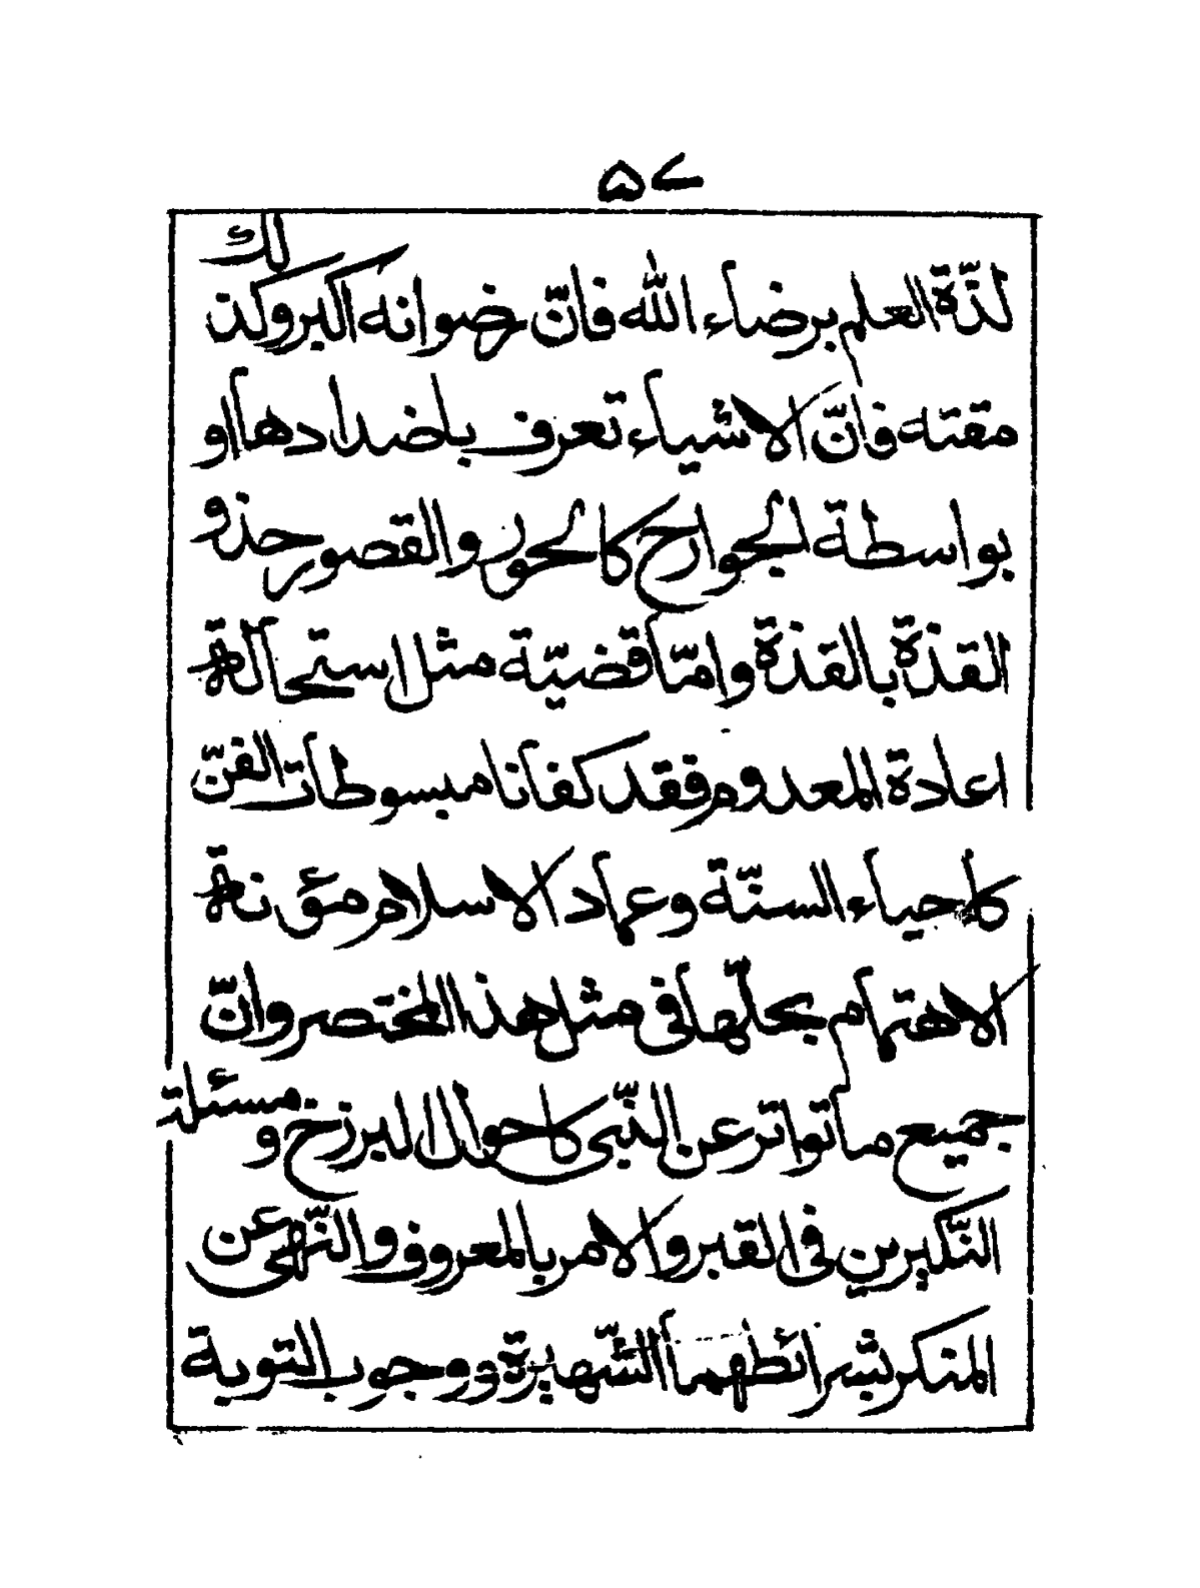 ۵۷
لذّة العلم برضاء الله فانّ رضوانه اكبر وكذلك
مقته فانّ الاشياء تعرف باضدادها او
بواسطة الجوارح كالحور والقصور حذو
القذة بالقذة وامّا قضيّة مثل استحالة
اعادة المعدوم فقد كفانا مبسوطات الفنّ
كاحياء السنّة وعماد الاسلام مؤنة
الاهتمام بحلّها فى مثل هذا المختصر وانّ
جميع ما تواتر عن النّبى كاحوال البرزخ و مسئلة
النّكيرين فى القبر والامر بالمعروف والنّهى عن
المنكر بشرائطهما الشّهيرة ووجوب التوبة